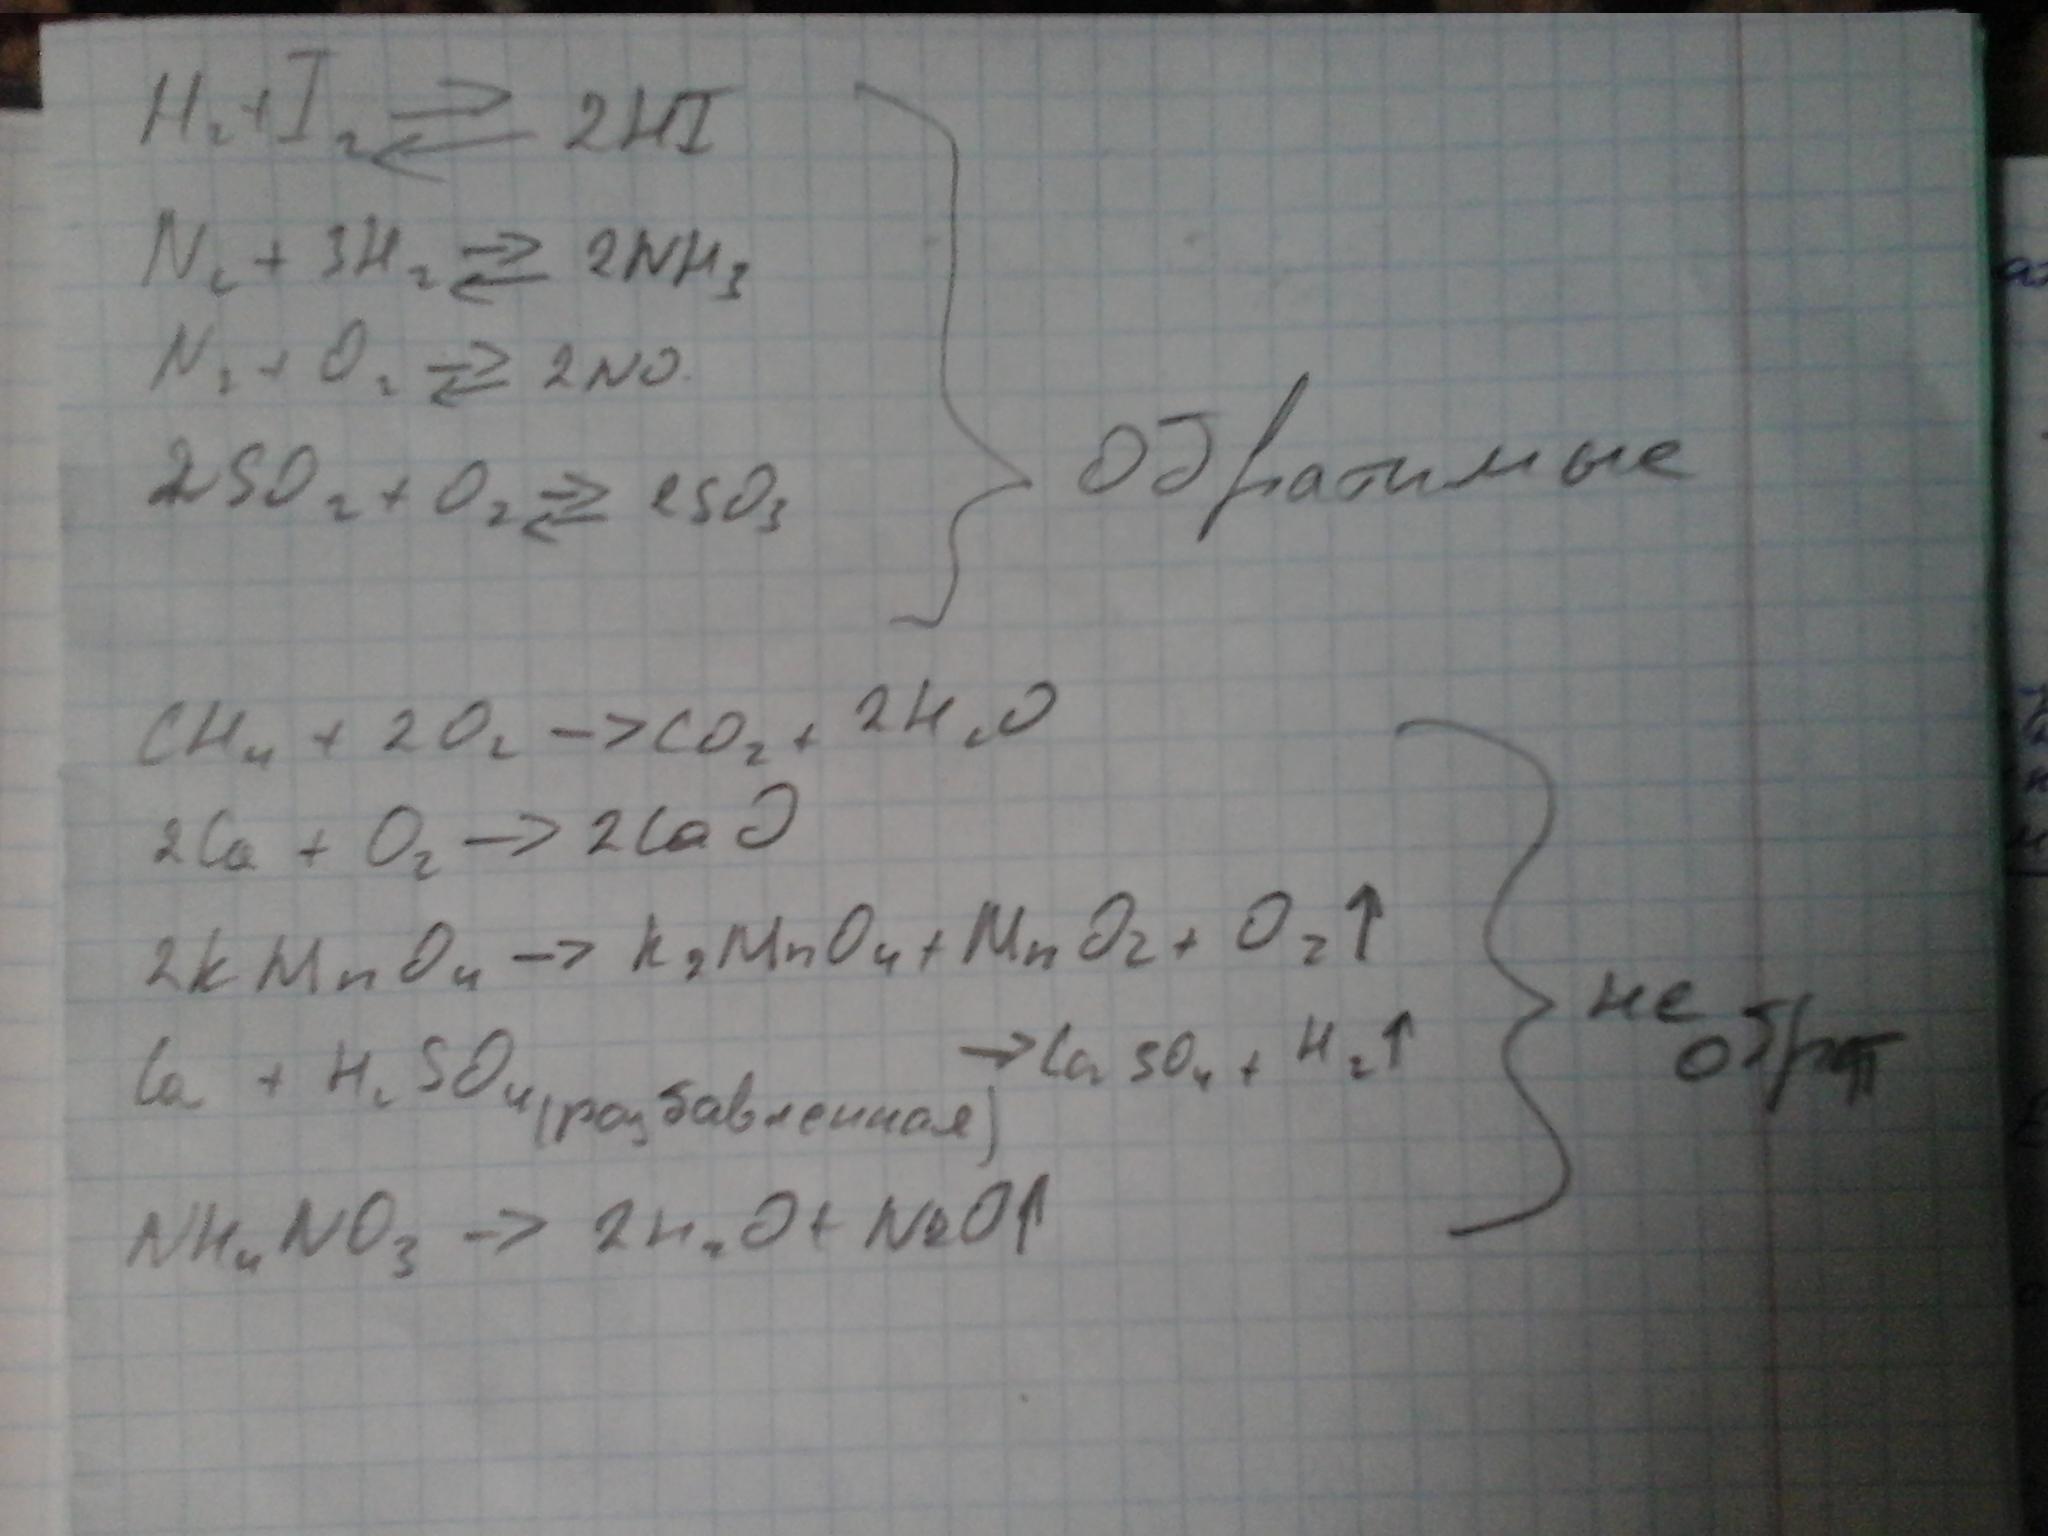 H₂+I₂ ⇄ 2HI
N₂ + 3H₂ ⇄ 2NH₃
N₂ + O₂ ⇄ 2NO
2SO₂ + O₂ ⇄ 2SO₃
Обратимые
CH₄ + 2O₂ → CO₂ + 2H₂O
2Ca + O₂ → 2CaO
2KMnO₄ → K₂MnO₄ + MnO₂ + O₂↑
Ca + H₂SO₄ (разбавленная) → CaSO₄ + H₂↑
NH₄NO₃ → 2H₂O + N₂O↑
не